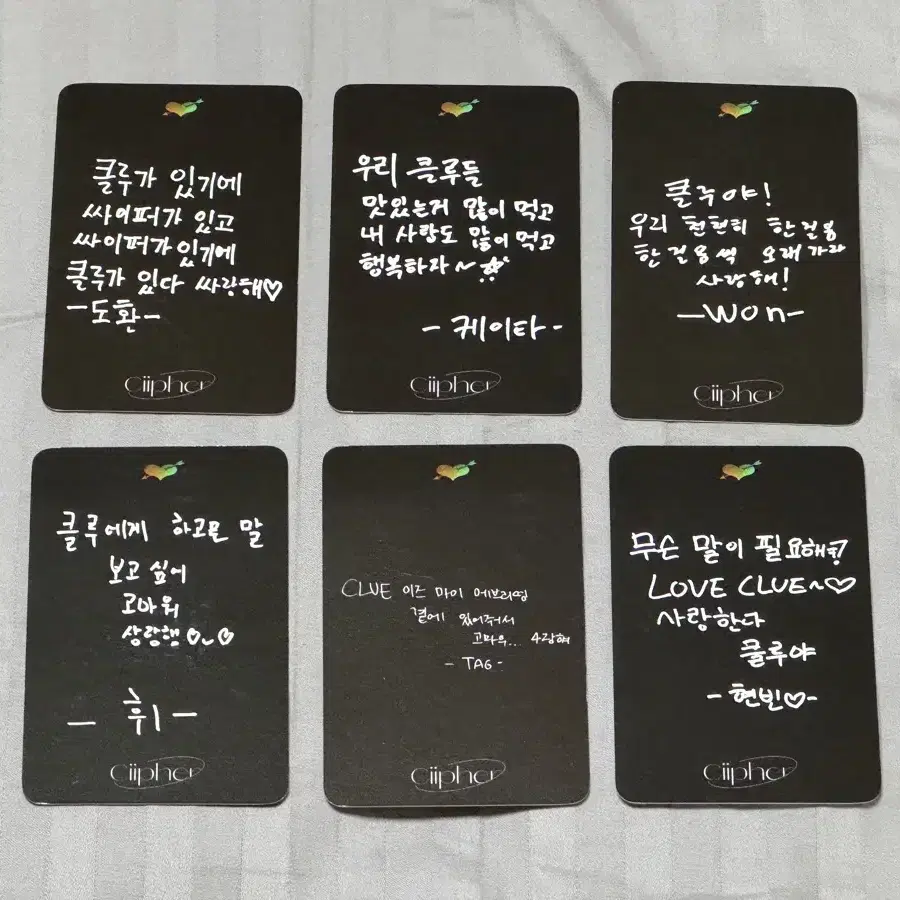 클루가 있기에
싸이퍼가 있고
싸이퍼가 있기에
클루가 있다 싸랑해♡
-도환-
ciipher
우리 클루들
맛있는거 많이 먹고
내 사랑도 많이 먹고
행복하자~☆
-케이타-
ciipher
클루야!
우리 천천히 한걸음
한걸음씩 오래가자
사랑해!
-Won-
ciipher
클루에게 하고픈 말
보고 싶어
고마워
상랑행♡~♡
- 휘 -
ciipher
CLUE 이즈 마이 에브리띵
곁에 있어줘서
고마우... 4랑혀
- TAG -
ciipher
무슨 말이 필요해?!
LOVE CLUE~♡
사랑한다
클루야
-현빈♡-
ciipher